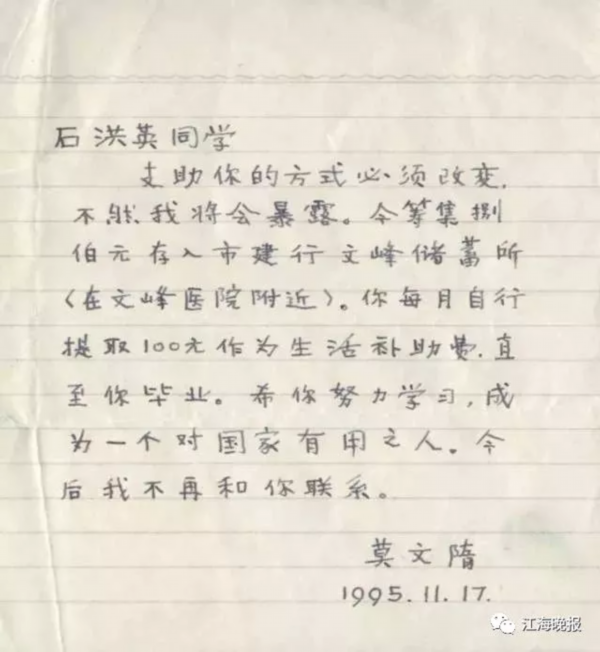 石洪英同学
支助你的方式必须改变，
不然我将会暴露。今筹集捌
佰元存入市建行文峰储蓄所
（在文峰医院附近）。你每月自行
提取100元作为生活补助费，直
至你毕业。希你努力学习，成
为一个对国家有用之人。今
后我不再和你联系。
莫文隋
1995.11.17.
江海晚报